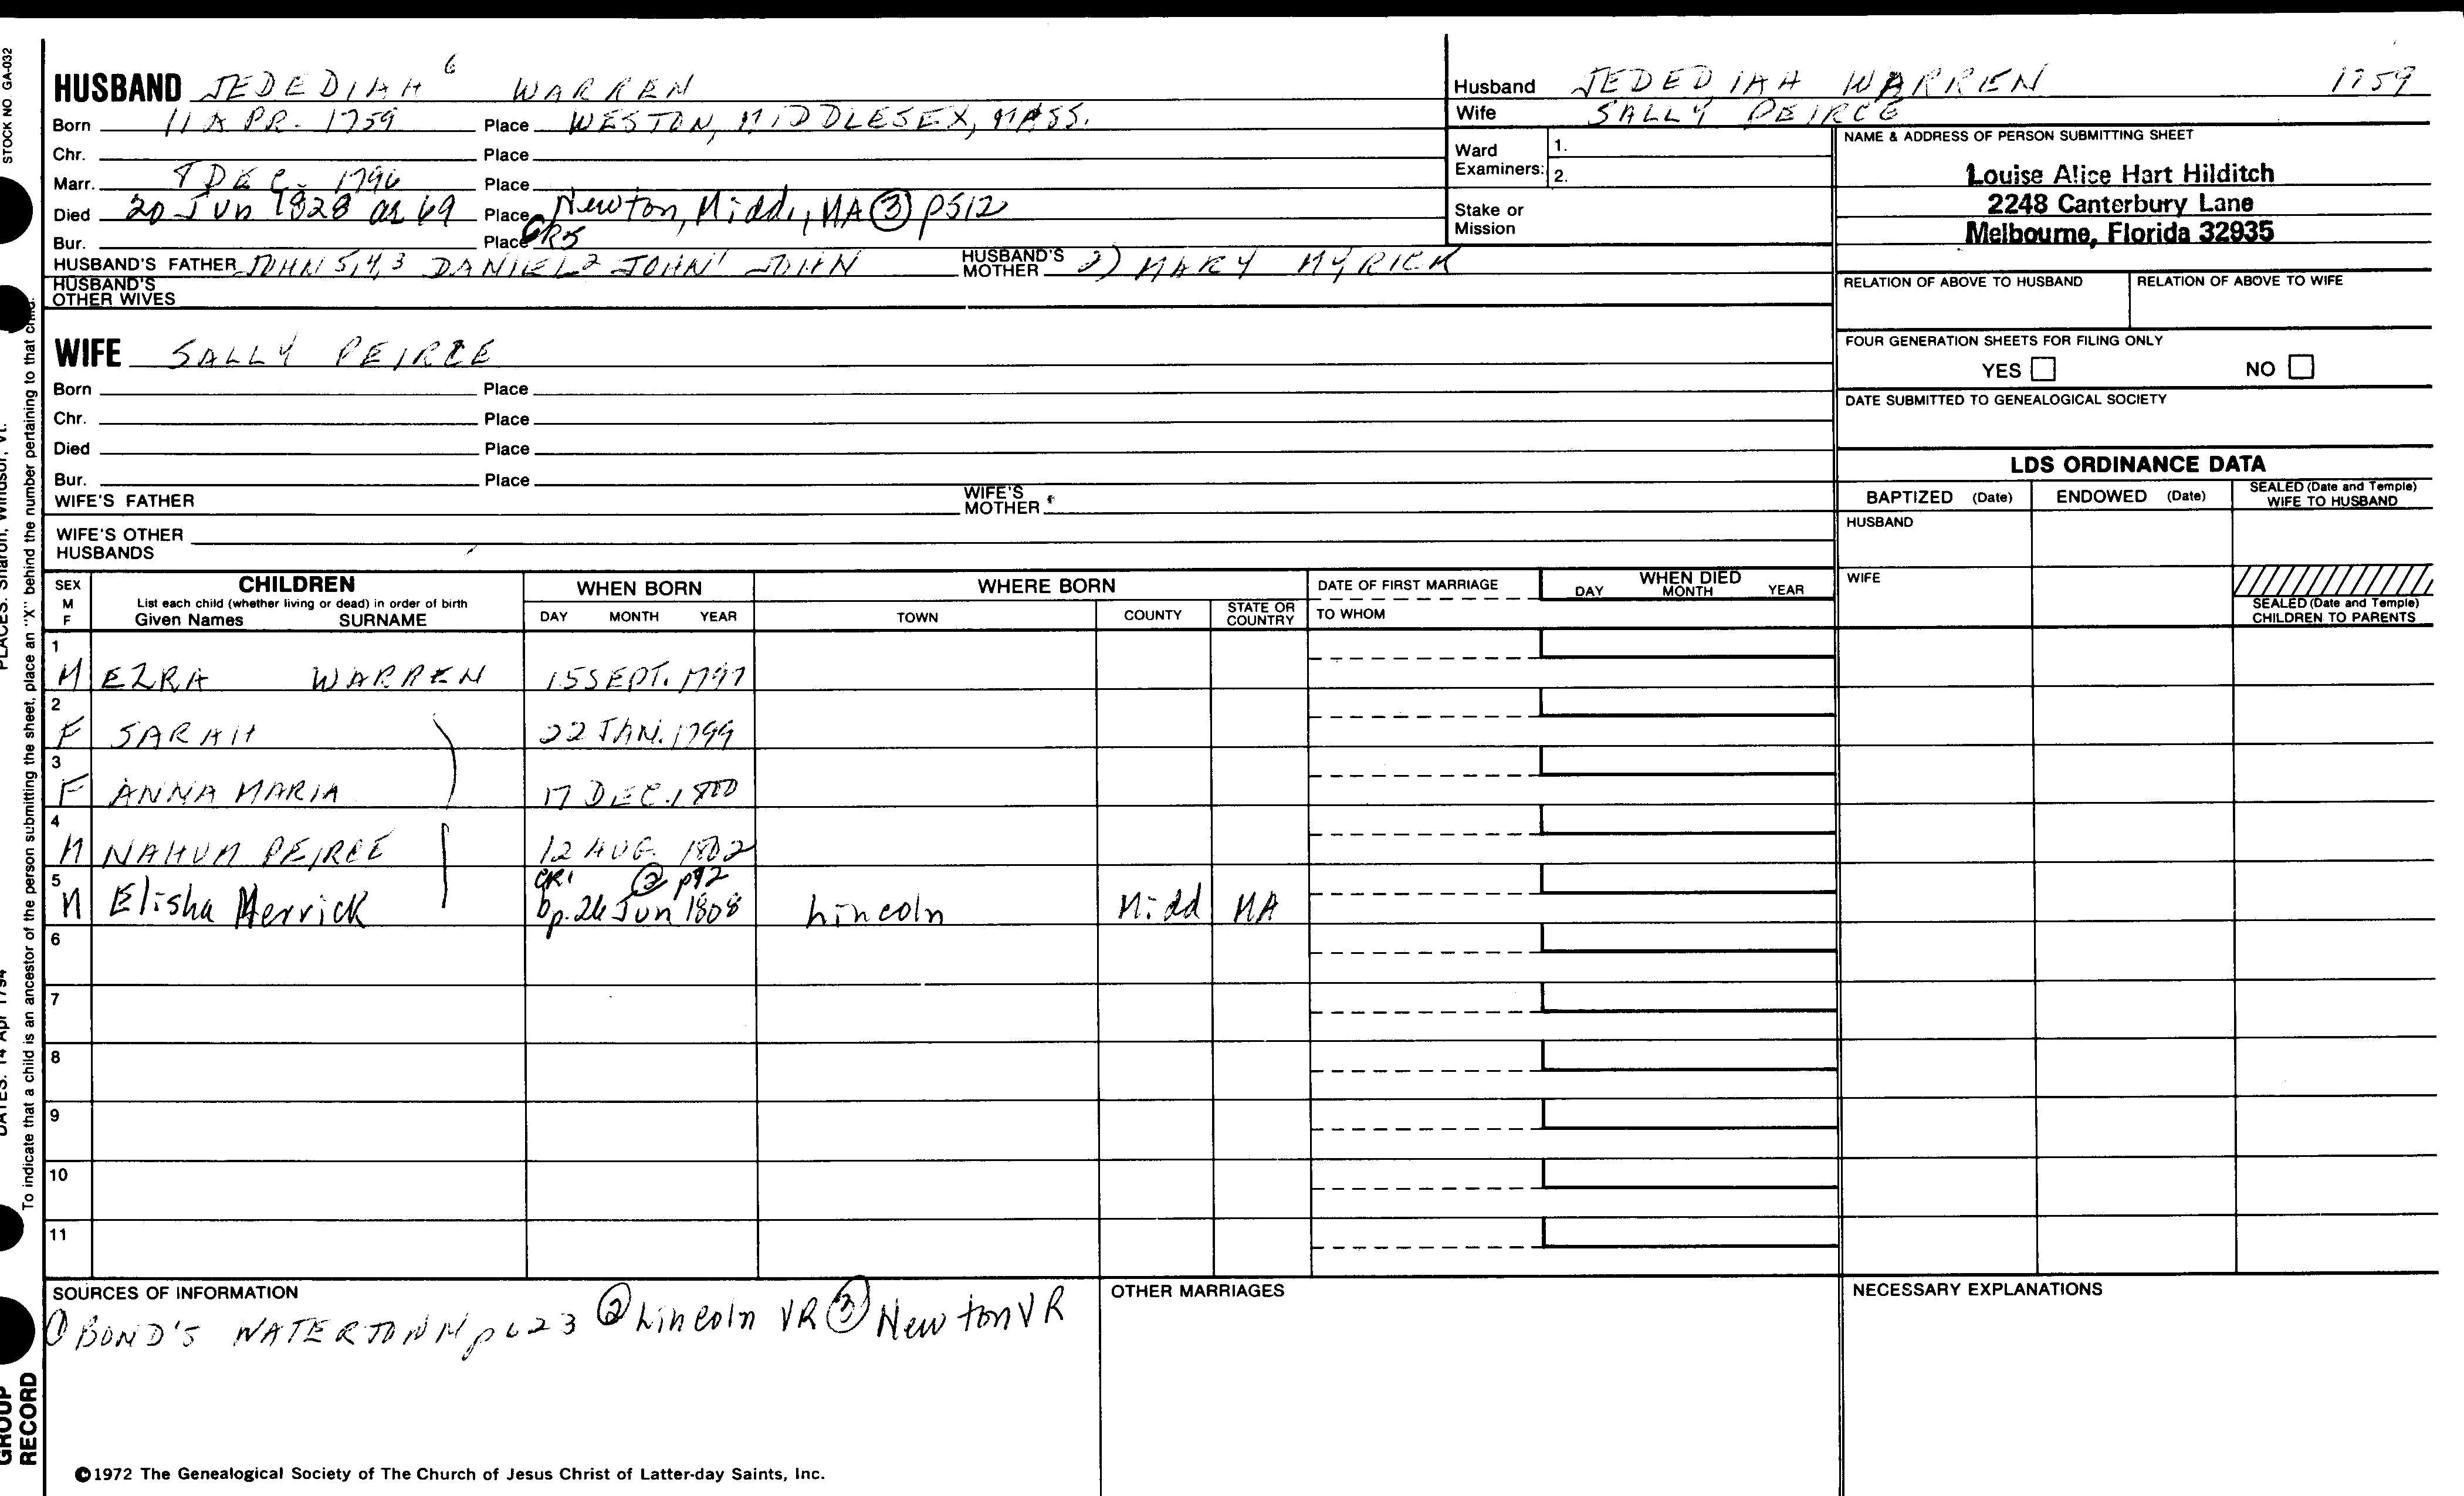 STOCK NO GA-032
HUSBAND JEDEDIAH 6 WARREN
Born 11 APR. 1759 Place WESTON, MIDDLESEX, MASS.
Chr. Place
Marr. 8 DEC. 1796 Place
Died 20 Jun 1828 ae 69 Place Newton, Midd., MA ③ p512
Bur. Place GR5
HUSBAND'S FATHER JOHN 5,4,3 DANIEL 2 JOHN 1 JOHN HUSBAND'S MOTHER 2) MARY MYRICK
HUSBAND'S OTHER WIVES
WIFE SALLY PEIRCE
Born Place
Chr. Place
Died Place
Bur. Place
WIFE'S FATHER WIFE'S MOTHER
WIFE'S OTHER HUSBANDS
Husband JEDEDIAH WARREN 1759
Wife SALLY PEIRCE
Ward Examiners: 1.
2.
Stake or Mission
NAME & ADDRESS OF PERSON SUBMITTING SHEET
Louise Alice Hart Hilditch
2248 Canterbury Lane
Melbourne, Florida 32935
RELATION OF ABOVE TO HUSBAND RELATION OF ABOVE TO WIFE
FOUR GENERATION SHEETS FOR FILING ONLY
YES NO
DATE SUBMITTED TO GENEALOGICAL SOCIETY
LDS ORDINANCE DATA
BAPTIZED (Date) ENDOWED (Date) SEALED (Date and Temple) WIFE TO HUSBAND
HUSBAND
WIFE
SEALED (Date and Temple) CHILDREN TO PARENTS
SEX M F CHILDREN WHEN BORN WHERE BORN DATE OF FIRST MARRIAGE WHEN DIED
List each child (whether living or dead) in order of birth
Given Names SURNAME DAY MONTH YEAR TOWN COUNTY STATE OR COUNTRY TO WHOM DAY MONTH YEAR
1
M EZRA WARREN 15 SEPT. 1797
2
F SARAH 22 JAN. 1799
3
F ANNA MARIA 17 DEC. 1800
4
M NAHUM PEIRCE 12 AUG 1802
5 CR1 ② p92
M Elisha Merrick bp. 26 Jun 1808 Lincoln Midd MA
6
7
8
9
10
11
SOURCES OF INFORMATION
① BOND'S WATERTOWN p623 ② Lincoln VR ③ Newton VR
OTHER MARRIAGES
NECESSARY EXPLANATIONS
©1972 The Genealogical Society of The Church of Jesus Christ of Latter-day Saints, Inc.
To indicate that a child is an ancestor of the person submitting the sheet, place an "X" behind the number pertaining to that child.
PLACES: Sharon, Windsor, Vt.
DATES: 14 Apr 1794
GROUP
RECORD